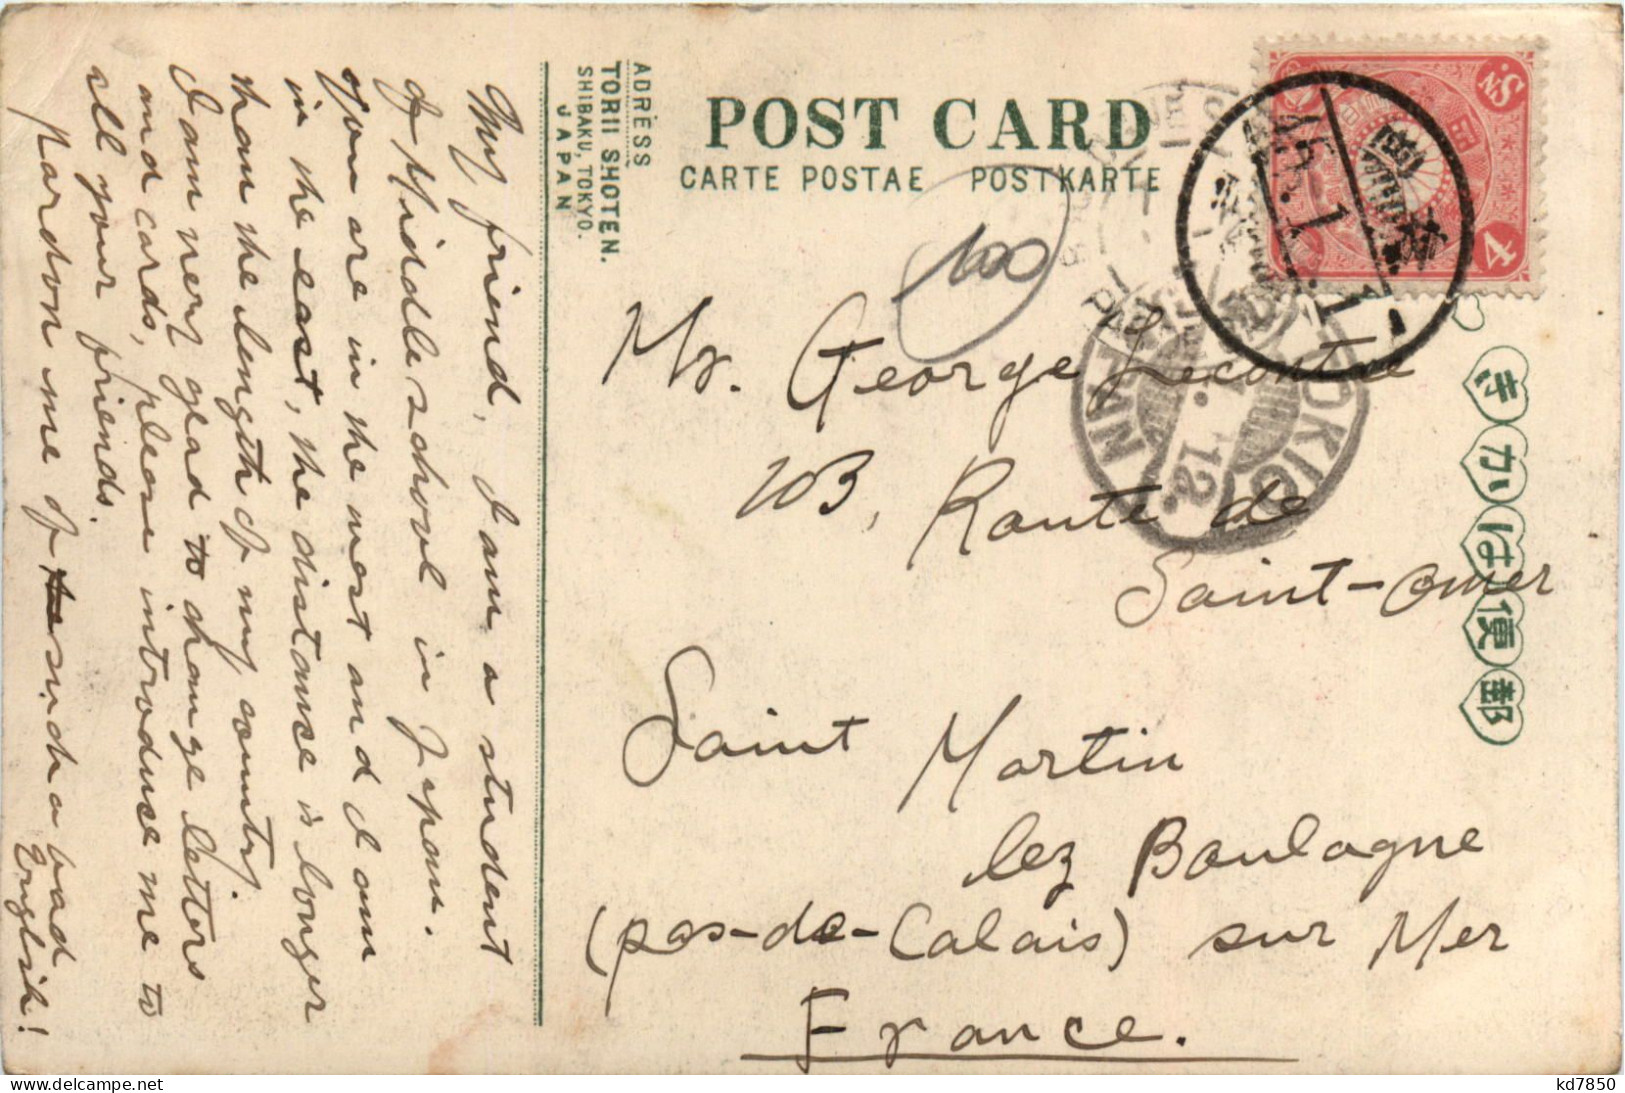 POST CARD
CARTE POSTAE POSTKARTE
ADRESS
TORII SHOTEN.
SHIBAKU, TOKYO.
JAPAN
My friend, I am a student
of Middle school in Japan.
You are in the west and I am
in the east, the distance is longer
than the length of my country
I am very glad to change letters
and cards, please introduce me to
all your friends.
pardon me of such a bad
English!
100
Mr. George Lecomte
103, Route de
Saint-Omer
Saint Martin
lez Boulogne
(pas-de-Calais) sur Mer
France.
S.N.
4
45.1.1
TOKIO
1. 12.
JAPAN
郵便はがき
kd7850